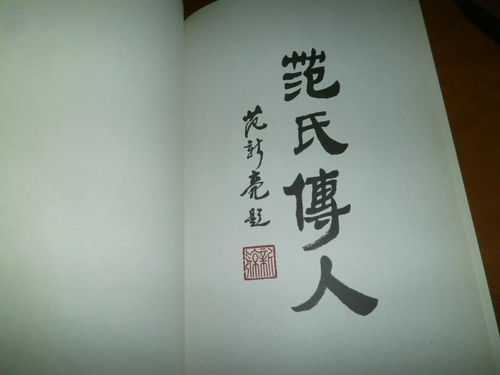 范氏傳人
范新亮题